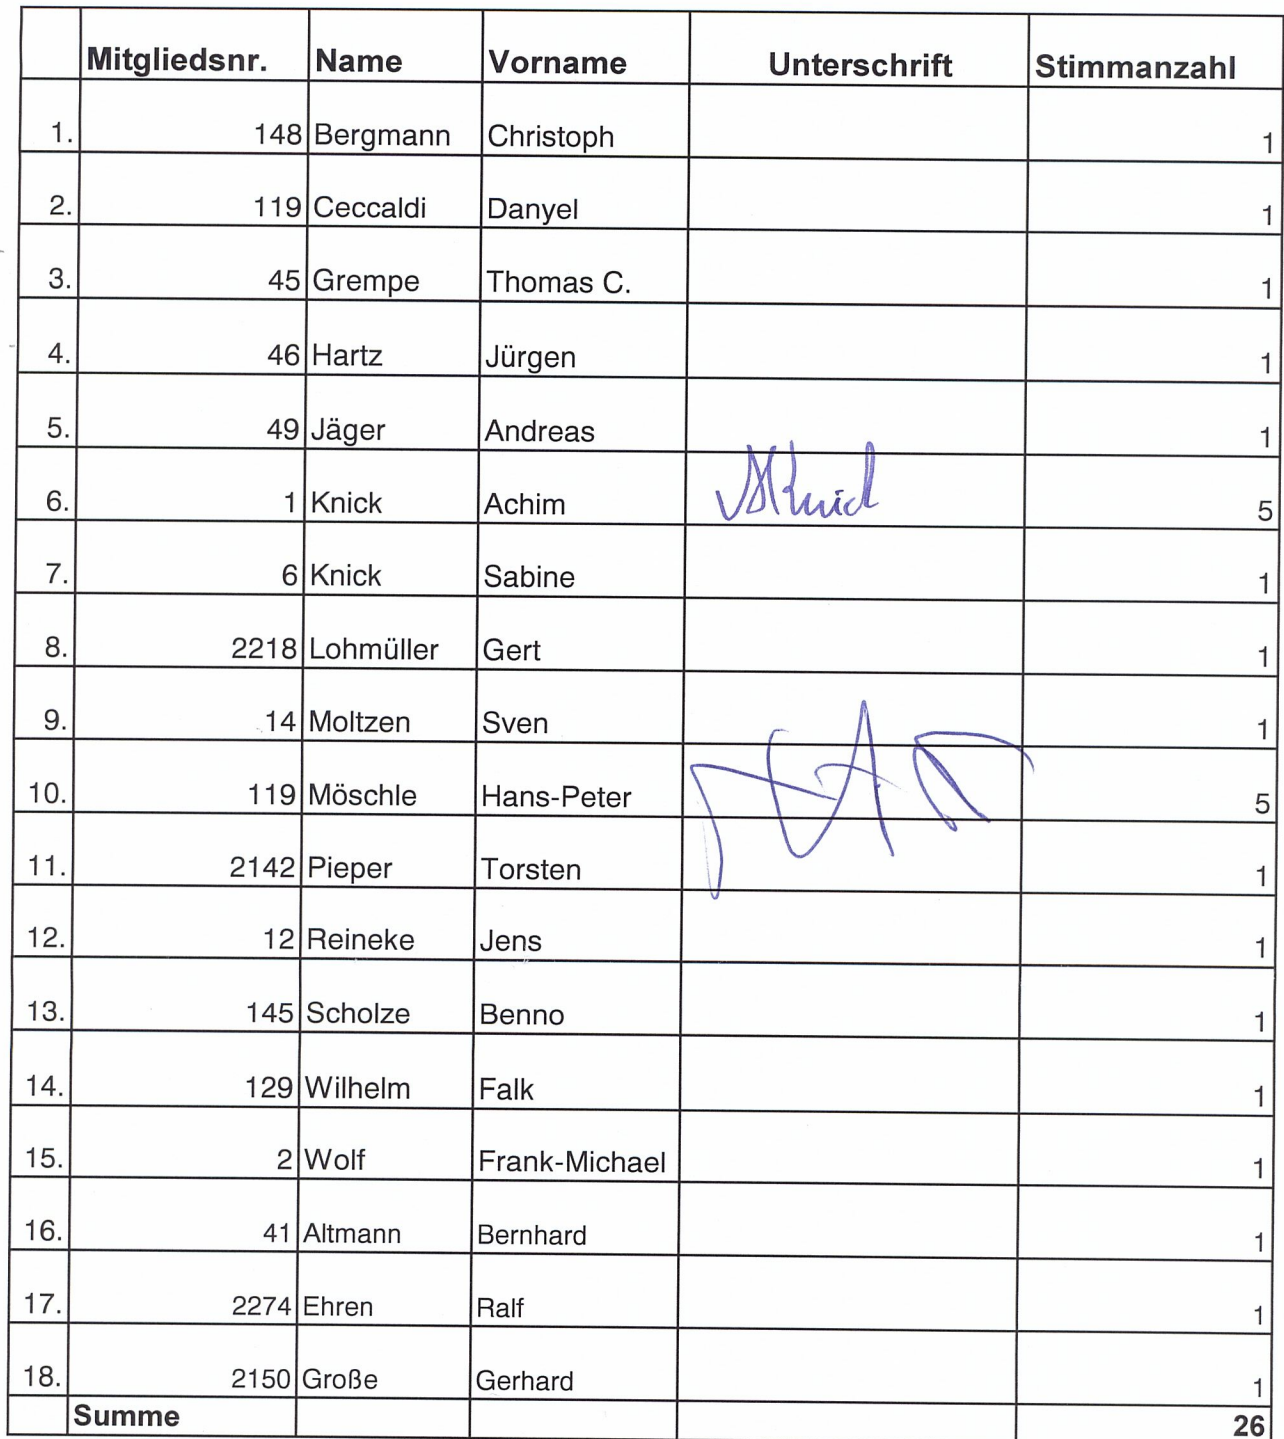 Mitgliedsnr. Name Vorname Unterschrift Stimmanzahl
1. 148 Bergmann Christoph 1
2. 119 Ceccaldi Danyel 1
3. 45 Grempe Thomas C. 1
4. 46 Hartz Jürgen 1
5. 49 Jäger Andreas 1
6. 1 Knick Achim AKnick 5
7. 6 Knick Sabine 1
8. 2218 Lohmüller Gert 1
9. 14 Moltzen Sven 1
10. 119 Möschle Hans-Peter 5
11. 2142 Pieper Torsten 1
12. 12 Reineke Jens 1
13. 145 Scholze Benno 1
14. 129 Wilhelm Falk 1
15. 2 Wolf Frank-Michael 1
16. 41 Altmann Bernhard 1
17. 2274 Ehren Ralf 1
18. 2150 Große Gerhard 1
Summe 26